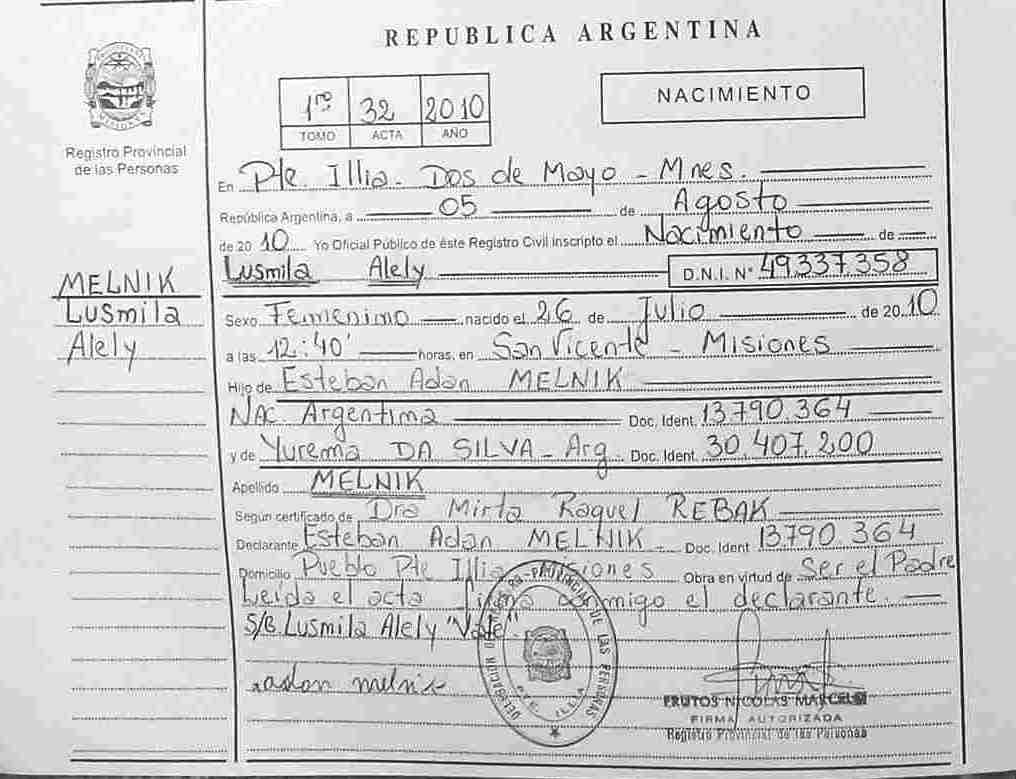 REPUBLICA ARGENTINA
1ro 32 2010
TOMO ACTA AÑO
NACIMIENTO
Registro Provincial
de las Personas
En Pte. Illia. Dos de Mayo - Mnes.
República Argentina, a 05 de Agosto
de 2010 Yo Oficial Público de éste Registro Civil inscripto el Nacimiento de
Lusmila Alely D.N.I. N° 49337358
MELNIK
Lusmila
Alely
Sexo Femenino nacido el 26 de Julio de 2010
a las 12:40' horas, en San Vicente - Misiones
Hijo de Esteban Adan MELNIK
Nac. Argentina Doc. Ident. 13790.364
y de Yurema DA SILVA - Arg. Doc. Ident. 30.407.200
Apellido MELNIK
Según certificado de Dra Mirta Raquel REBAK
Declarante Esteban Adan MELNIK - Doc. Ident 13790.364
Domicilio Pueblo Pte Illia Misiones Obra en virtud de Ser el Padre
Leida el acta firma conmigo el declarante.
S/B Lusmila Alely "Vale".
adan melnik
PROVINCIAL DE LAS PERSONAS
PTE. ILLIA
FRUTOS NICOLAS MARCELO
FIRMA AUTORIZADA
Registro Provincial de las Personas